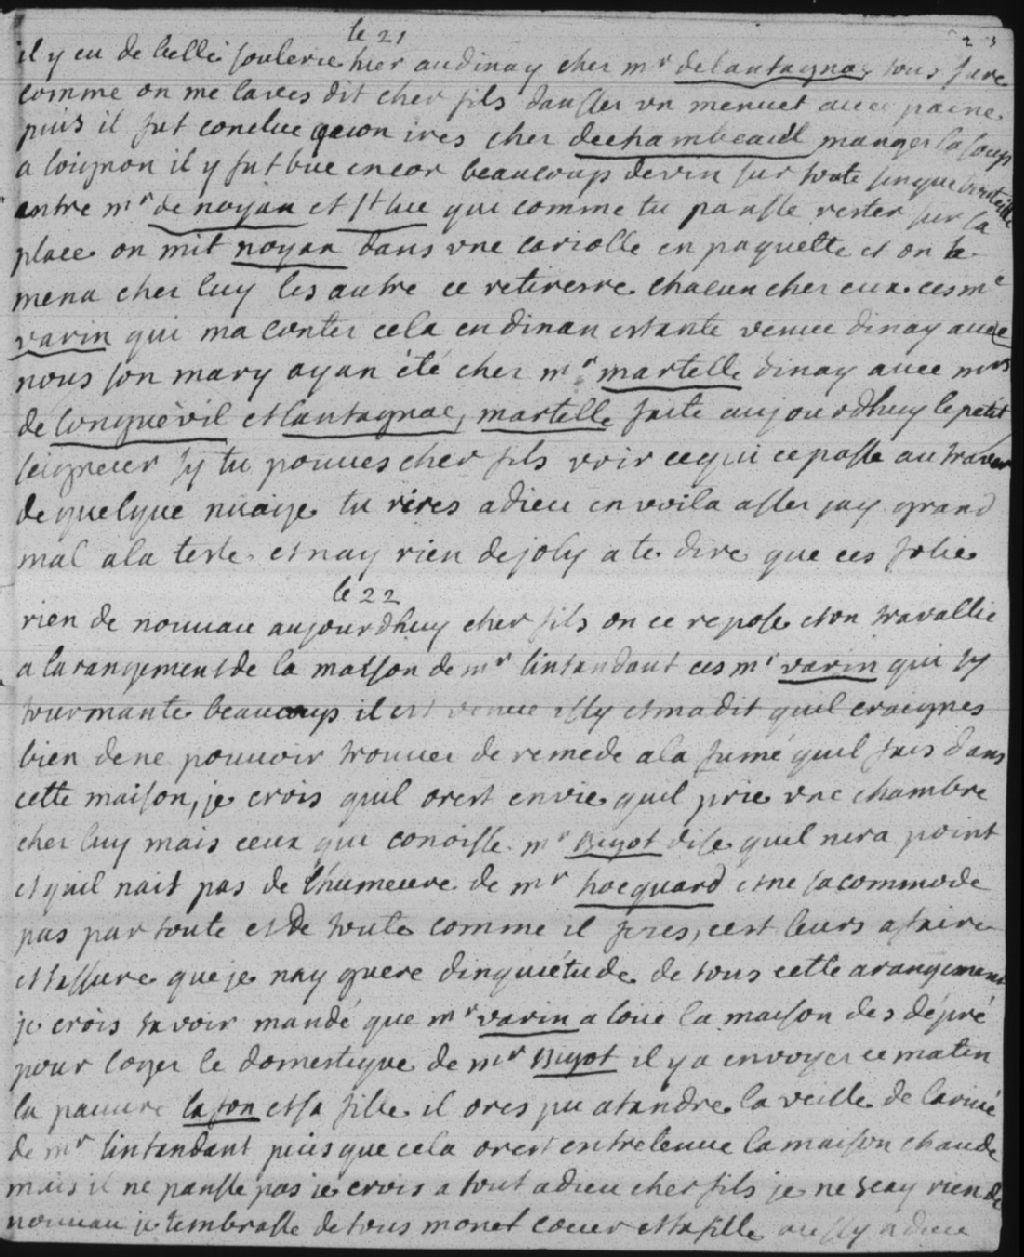 le 21
il y eu de belle soulerie hier au dinay cher mr de lantagnac tous fure
comme on me la ves dit cher fils danser un menuet avec paine
puis il fut conclue qu'on ires cher dechambeault manger la soup
a loignon il y fut bue encor beaucoup de vin sur toute sinque bouteille
entre mr de noyan et st luc qui comme tu pansse rester sur la
place on mit noyan dans une cariolle en paquette et on le
mena cher luy les autre ce retirerre chacun cher eux ces me
varin qui ma conter cela en dinan estante venue dinay avec
nous son mary ayan été cher mr martelle dinay avec mrs
de longuëvil et lantagnac, martelle faite aujourdhuy le petit
seigneur sy tu pouves cher fils voir ce qui ce passe au traver
de quelque nuaige tu rires adieu en voila asses jay grand
mal a la teste et nay rien de joly a te dire que ces folie
le 22
rien de nouvau aujourdhuy cher fils on ce repose et on travallie
a larangement de la maison de mr lintandant ces mr varin qui sy
tourmante beaucoup il est venue issy et ma dit quil craignes
bien de ne pouvoir trouver de remede a la fumé quil fais dans
cette maison, je crois quil orest envie quil prie une chambre
cher luy mais ceux qui conoisse mr Bigot dise quil nira point
et quil nait pas de lhumeure de mr hocquard et ne sacommode
pas par toute et de toute comme il feres, cest leurs afaire
et tassure que je nay guere dinquiétude de tous cette arangement
je crois tavoir mandé que mr varin a loué la maison des dépré
pour loger le domestique de mr Bigot il y a envoyer ce matin
la pauvre lafon et sa fille il ores pu atandre la veille de larivé
de mr lintandant puis que cela orest entretenue la maison chaude
mais il ne pansse pas je crois a tout adieu cher fils je ne scay rien de
nouvau je tembrasse de tous monet coeur et ta fille aussy adieu